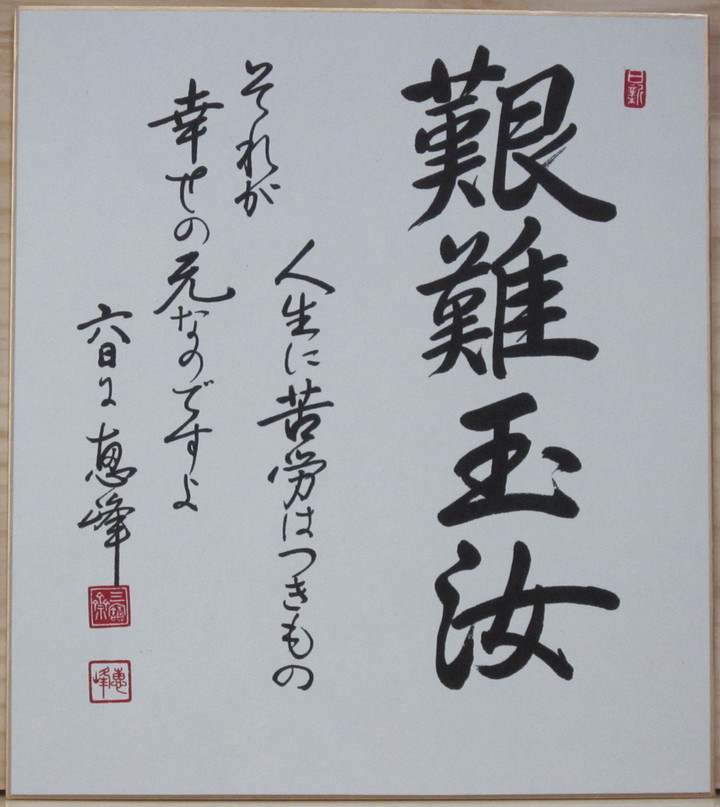 日新
艱難玉汝
人生に苦労はつきもの
それが
幸せの元なのですよ
恵峰
恵峰